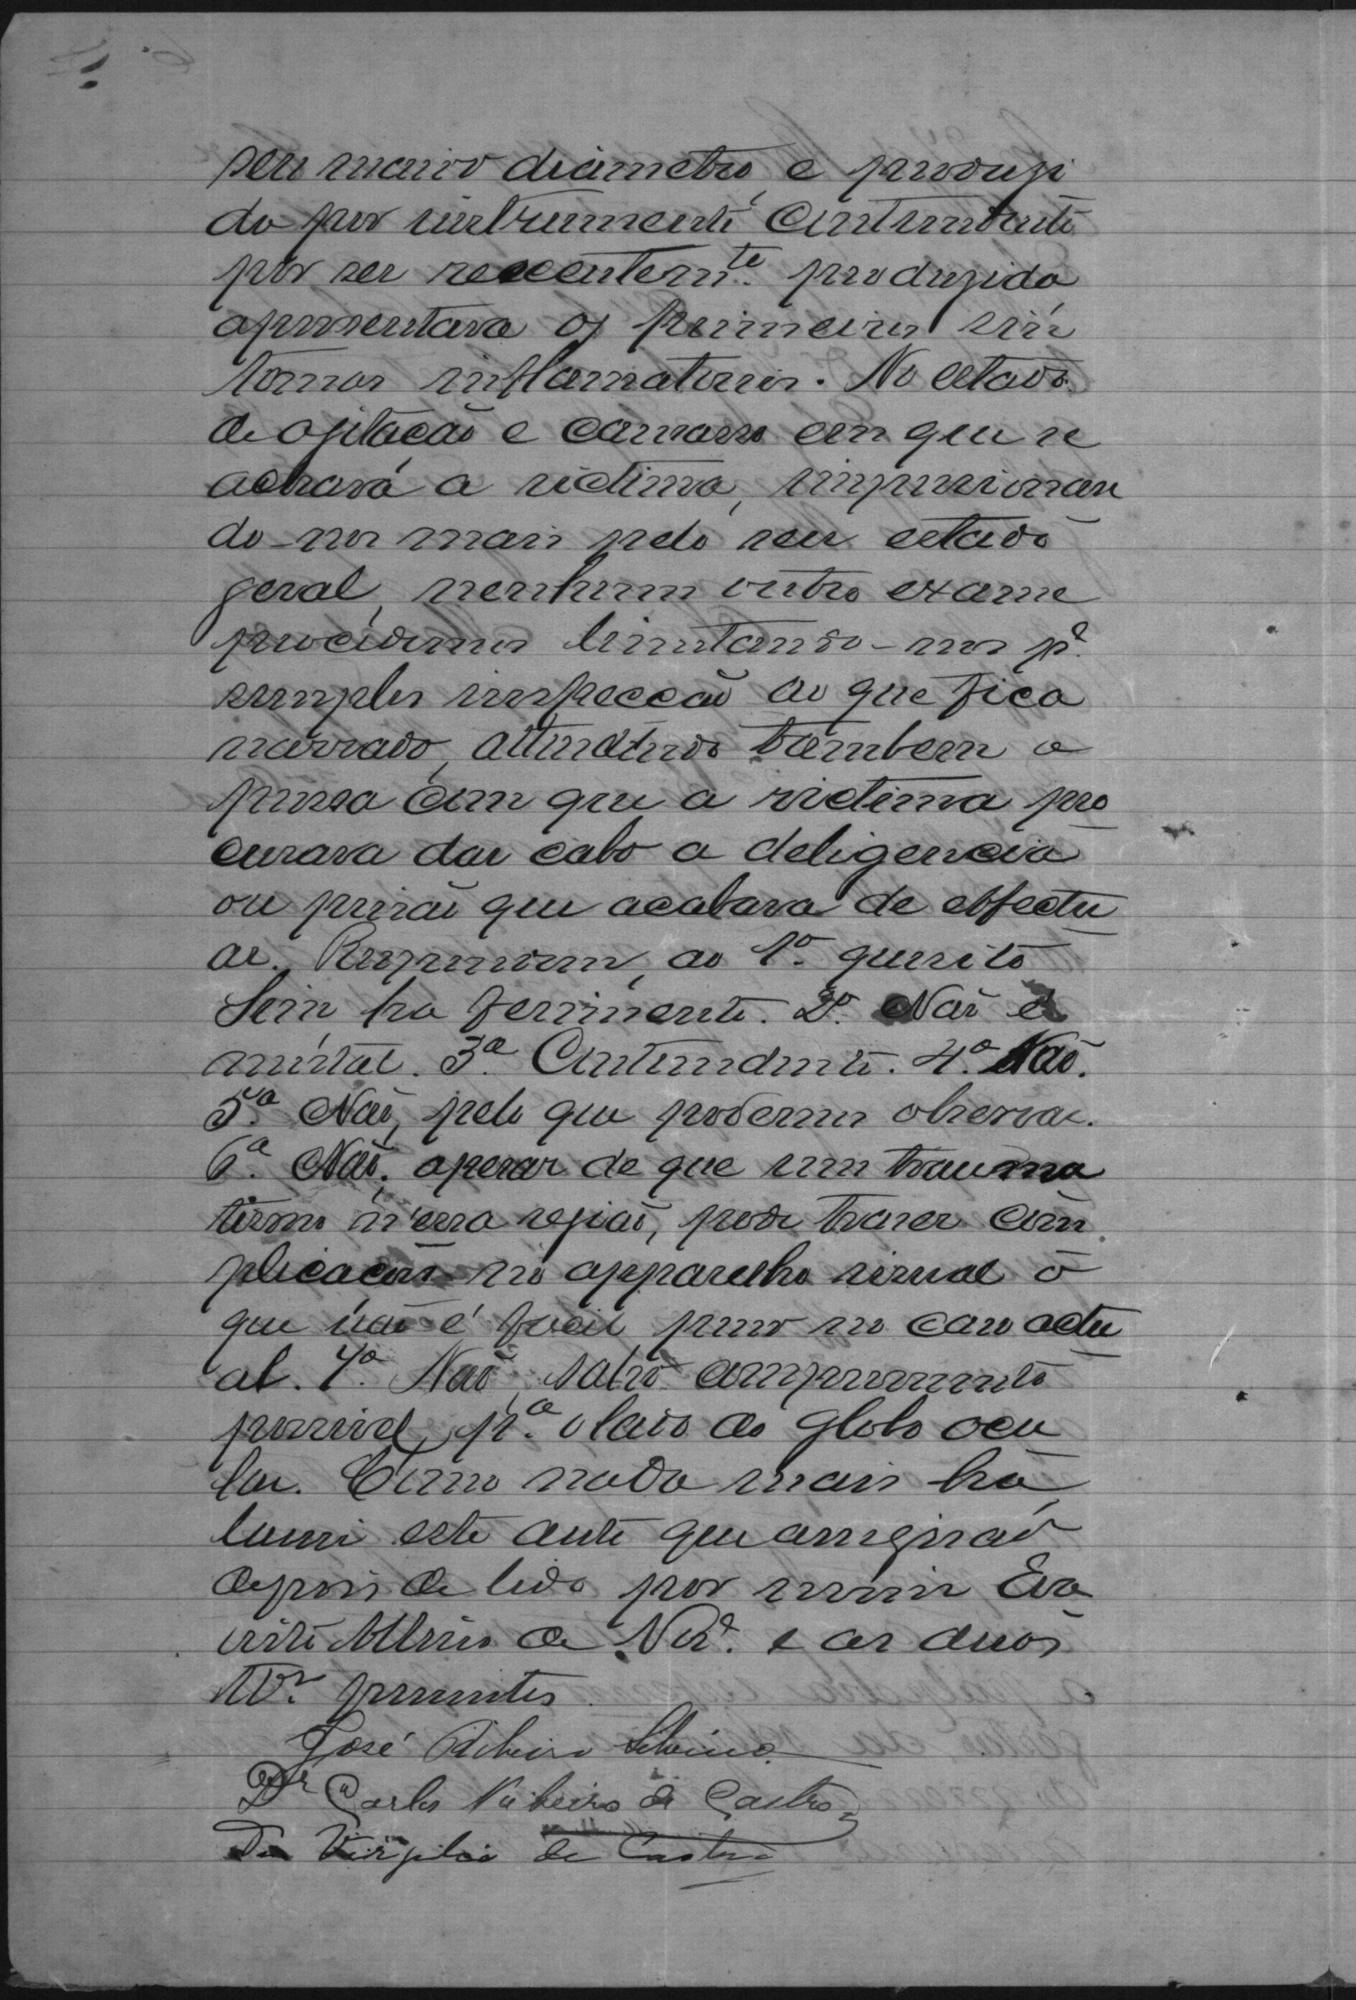 seu maior diametro, e produzi
do por instrumento contundente
por ser recentem.te produzido
apresentava os primeiros sin
tomas inflamatorios. No estado
de agitação e cansasso em que se
achava a victima, impressionan
do-nos mais pelo seu estado
geral, nenhum outro exame
procedemos limitando-nos p.ª
simples inspecção ao que fica
narrado, attendendo tambem a
pressa com que a victima pro
curava dar cabo a deligencia
ou prisão que acabava de effectu
ar. Responderam, ao 1.º quesito
Sim ha ferimento. 2.º Não é
mortal. 3.ª Contundente. 4.ª Não.
5.ª Não, pelo que podemos observar.
6.ª Não, apesar de que um trauma
tismo n'essa região, pode trazer com
plicações no apparelho visual o
que não é facil prever no caso actu
al. 7.ª Não, salvo compromento
possivel p.ª o lado do globo ocu
lar. Como nada mais há
lavrei este auto que assignão
depois de lido por mim Eva
risto de e as duas
tt.as presentes.
José Ribeiro
Dr Carlos Ribeiro de Castro
Dr Virgilio de Castro